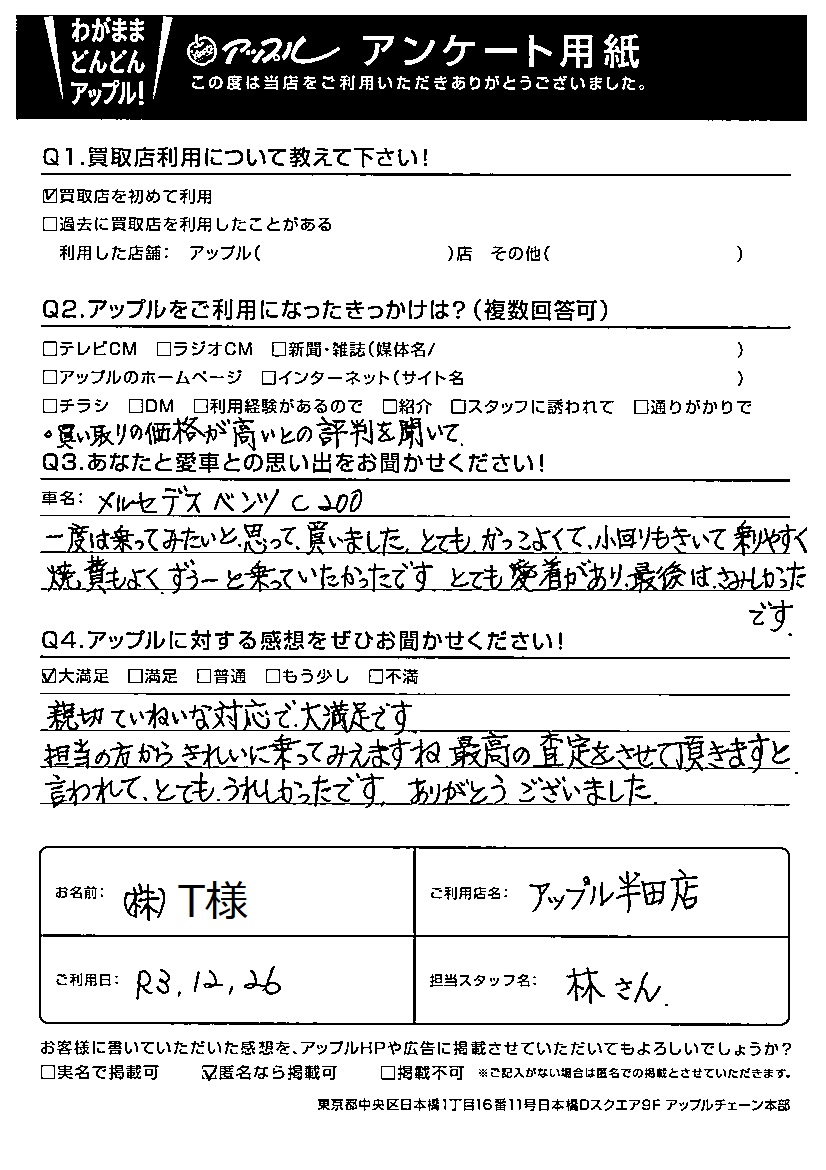 わがまま
どんどん
アップル!
アップル アンケート用紙
この度は当店をご利用いただきありがとうございました。
Q1.買取店利用について教えて下さい!
☑買取店を初めて利用
□過去に買取店を利用したことがある
利用した店舗: アップル( )店 その他( )
Q2.アップルをご利用になったきっかけは?(複数回答可)
□テレビCM □ラジオCM □新聞・雑誌(媒体名/ )
□アップルのホームページ □インターネット(サイト名 )
□チラシ □DM □利用経験があるので □紹介 □スタッフに誘われて □通りがかりで
。買い取りの価格が高いとの評判を聞いて.
Q3.あなたと愛車との思い出をお聞かせください!
車名: メルセデス ベンツ C 200
一度は乗ってみたいと、思って、買いました。とても、かっこよくて、小回りもきいて 乗りやすく
燃費もよく、ずうーと乗っていたかったです とても愛着があり、最後は、さみしかった
です.
Q4.アップルに対する感想をぜひお聞かせください!
☑大満足 □満足 □普通 □もう少し □不満
親切ていねいな対応で、大満足です
担当の方から きれいに乗ってみえますね 最高の 査定をさせて頂きますと.
言われて、とても、うれしかったです。 ありがとう ございました.
お名前: (株) T様
ご利用店名: アップル半田店
ご利用日: R3.12.26
担当スタッフ名: 林さん.
お客様に書いていただいた感想を、アップルHPや広告に掲載させていただいてもよろしいでしょうか?
□実名で掲載可 ☑匿名なら掲載可 □掲載不可 ※ご記入がない場合は匿名での掲載とさせていただきます。
東京都中央区日本橋1丁目16番11号日本橋Dスクエア9F アップルチェーン本部